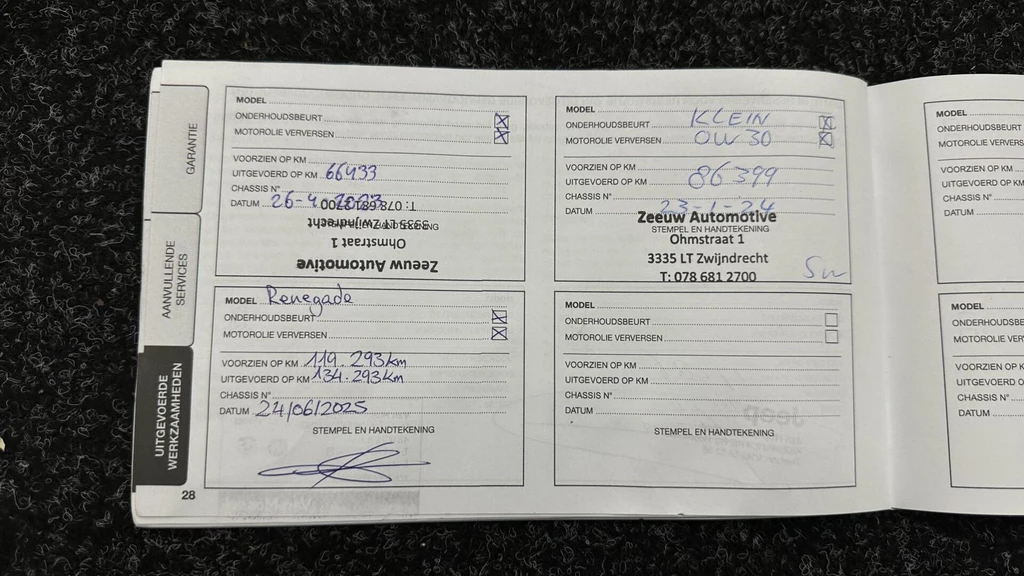 GARANTIE
AANVULLENDE
SERVICES
UITGEVOERDE
WERKZAAMHEDEN
MODEL
ONDERHOUDSBEURT
MOTOROLIE VERVERSEN
VOORZIEN OP KM
UITGEVOERD OP KM 66433
CHASSIS N°
DATUM 26-4-2023
STEMPEL EN HANDTEKENING
Zeeuw Automotive
Ohmstraat 1
3335 LT Zwijndrecht
T: 078 681 2700
MODEL
ONDERHOUDSBEURT KLEIN
MOTOROLIE VERVERSEN OW30
VOORZIEN OP KM
UITGEVOERD OP KM 86399
CHASSIS N°
DATUM 23-1-24
Zeeuw Automotive
STEMPEL EN HANDTEKENING
Ohmstraat 1
3335 LT Zwijndrecht
T: 078 681 2700
MODEL Renegade
ONDERHOUDSBEURT
MOTOROLIE VERVERSEN
VOORZIEN OP KM 119.293km
UITGEVOERD OP KM 134.293km
CHASSIS N°
DATUM 24/06/2025
STEMPEL EN HANDTEKENING
MODEL
ONDERHOUDSBEURT
MOTOROLIE VERVERSEN
VOORZIEN OP KM
UITGEVOERD OP KM
CHASSIS N°
DATUM
STEMPEL EN HANDTEKENING
28
MODEL
ONDERHOUDSBEURT
MOTOROLIE
VOORZIEN OP KM
UITGEVOERD
CHASSIS N°
DATUM
MODEL
MOTOROLIE
VOORZIEN OP
UITGEVOERD
CHASSIS N°
DATUM